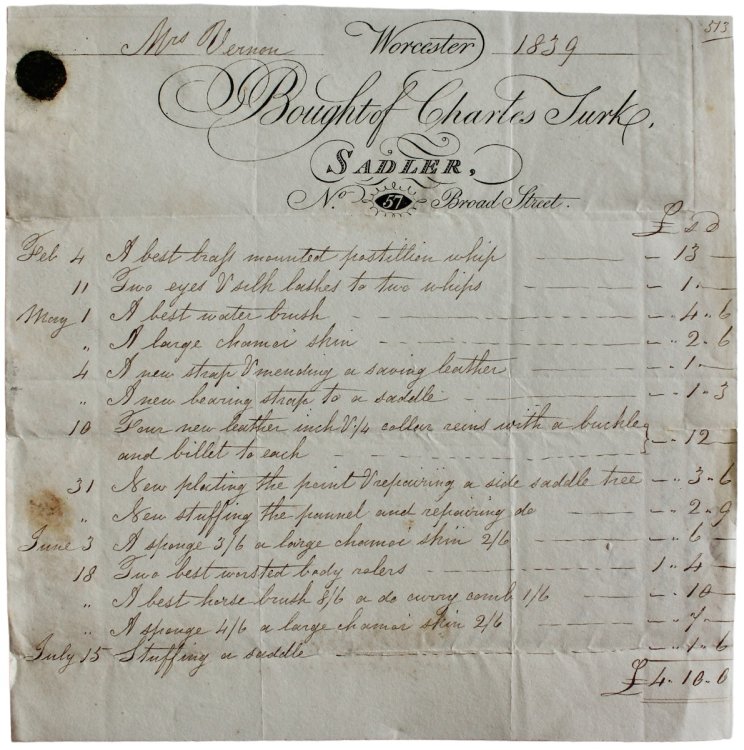 513
Mrs Vernon Worcester 1839
Bought of Charles Turk,
SADLER,
No. 57 Broad Street.
£ s D
Feb 4 A best brass mounted postillion whip - 13 -
11 Two eyes & silk lashes to two whips - 1 -
May 1 A best water brush - 4 " 6
" A large chamoi skin - 2 " 6
4 A new strap & mending a saving leather - 1 -
" A new bearing strap to a saddle - 1 " 3
10 Four new leather inch & 1/4 collar reins with a buckle
and billet to each } - 12 -
31 New plating the point & repairing a side saddle tree - 3 " 6
" New stuffing the pannel and repairing do - 2 " 9
June 3 A sponge 3/6 a large chamoi skin 2/6 - 6 -
18 Two best worsted body rolers 1 " 4 -
" A best horse brush 8/6 a do curry comb 1/6 - 10 -
" A sponge 4/6 a large chamoi skin 2/6 - 7 -
July 15 Stuffing a saddle - 1 " 6
£4 " 10 " 0